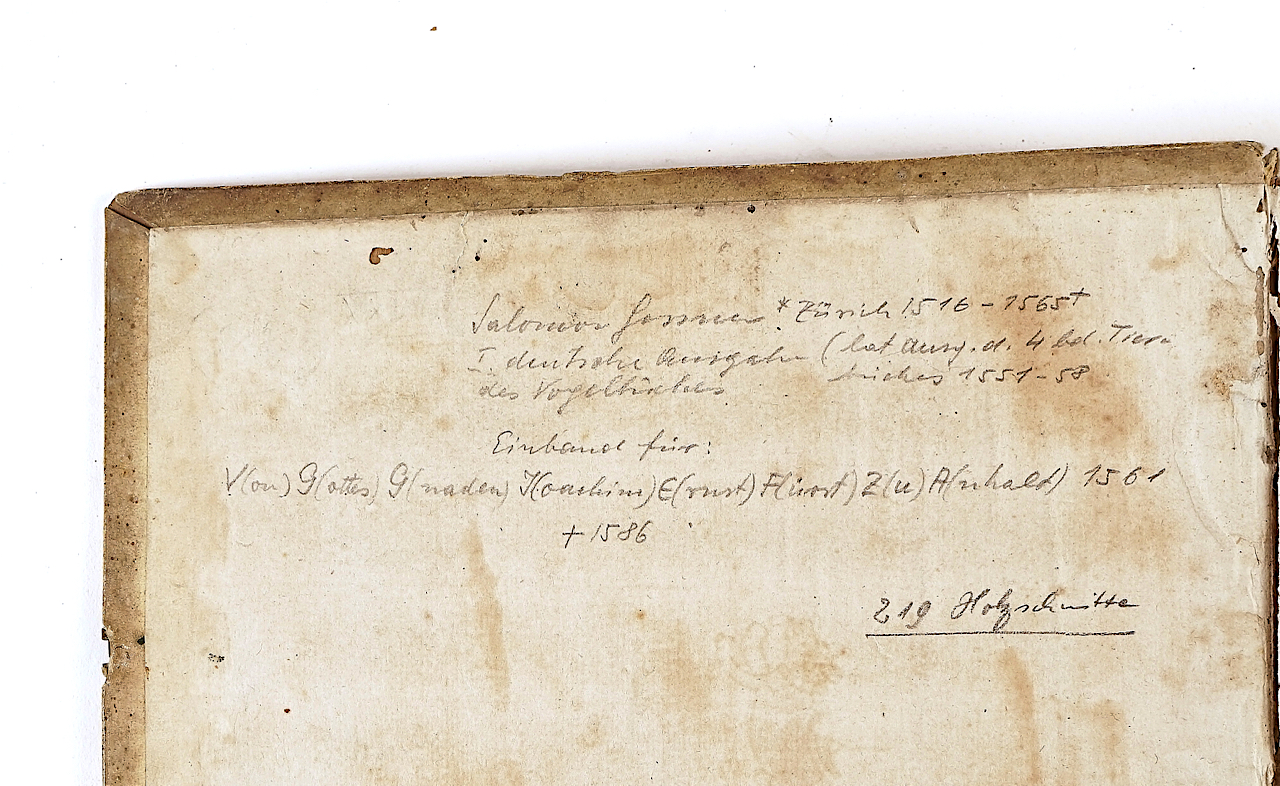 Salomon Gessner * Zürich 1516 - 1565 †
I. deutsche Ausgabe (lat Ausg. d. 4 bd. Tier=
des Vogelbuches buches 1551-58
Einband für:
V(on) G(ottes) G(naden) J(oachim) E(rnst) F(ürst) Z(u) A(nhalt) 1561
† 1586
219 Holzschnitte